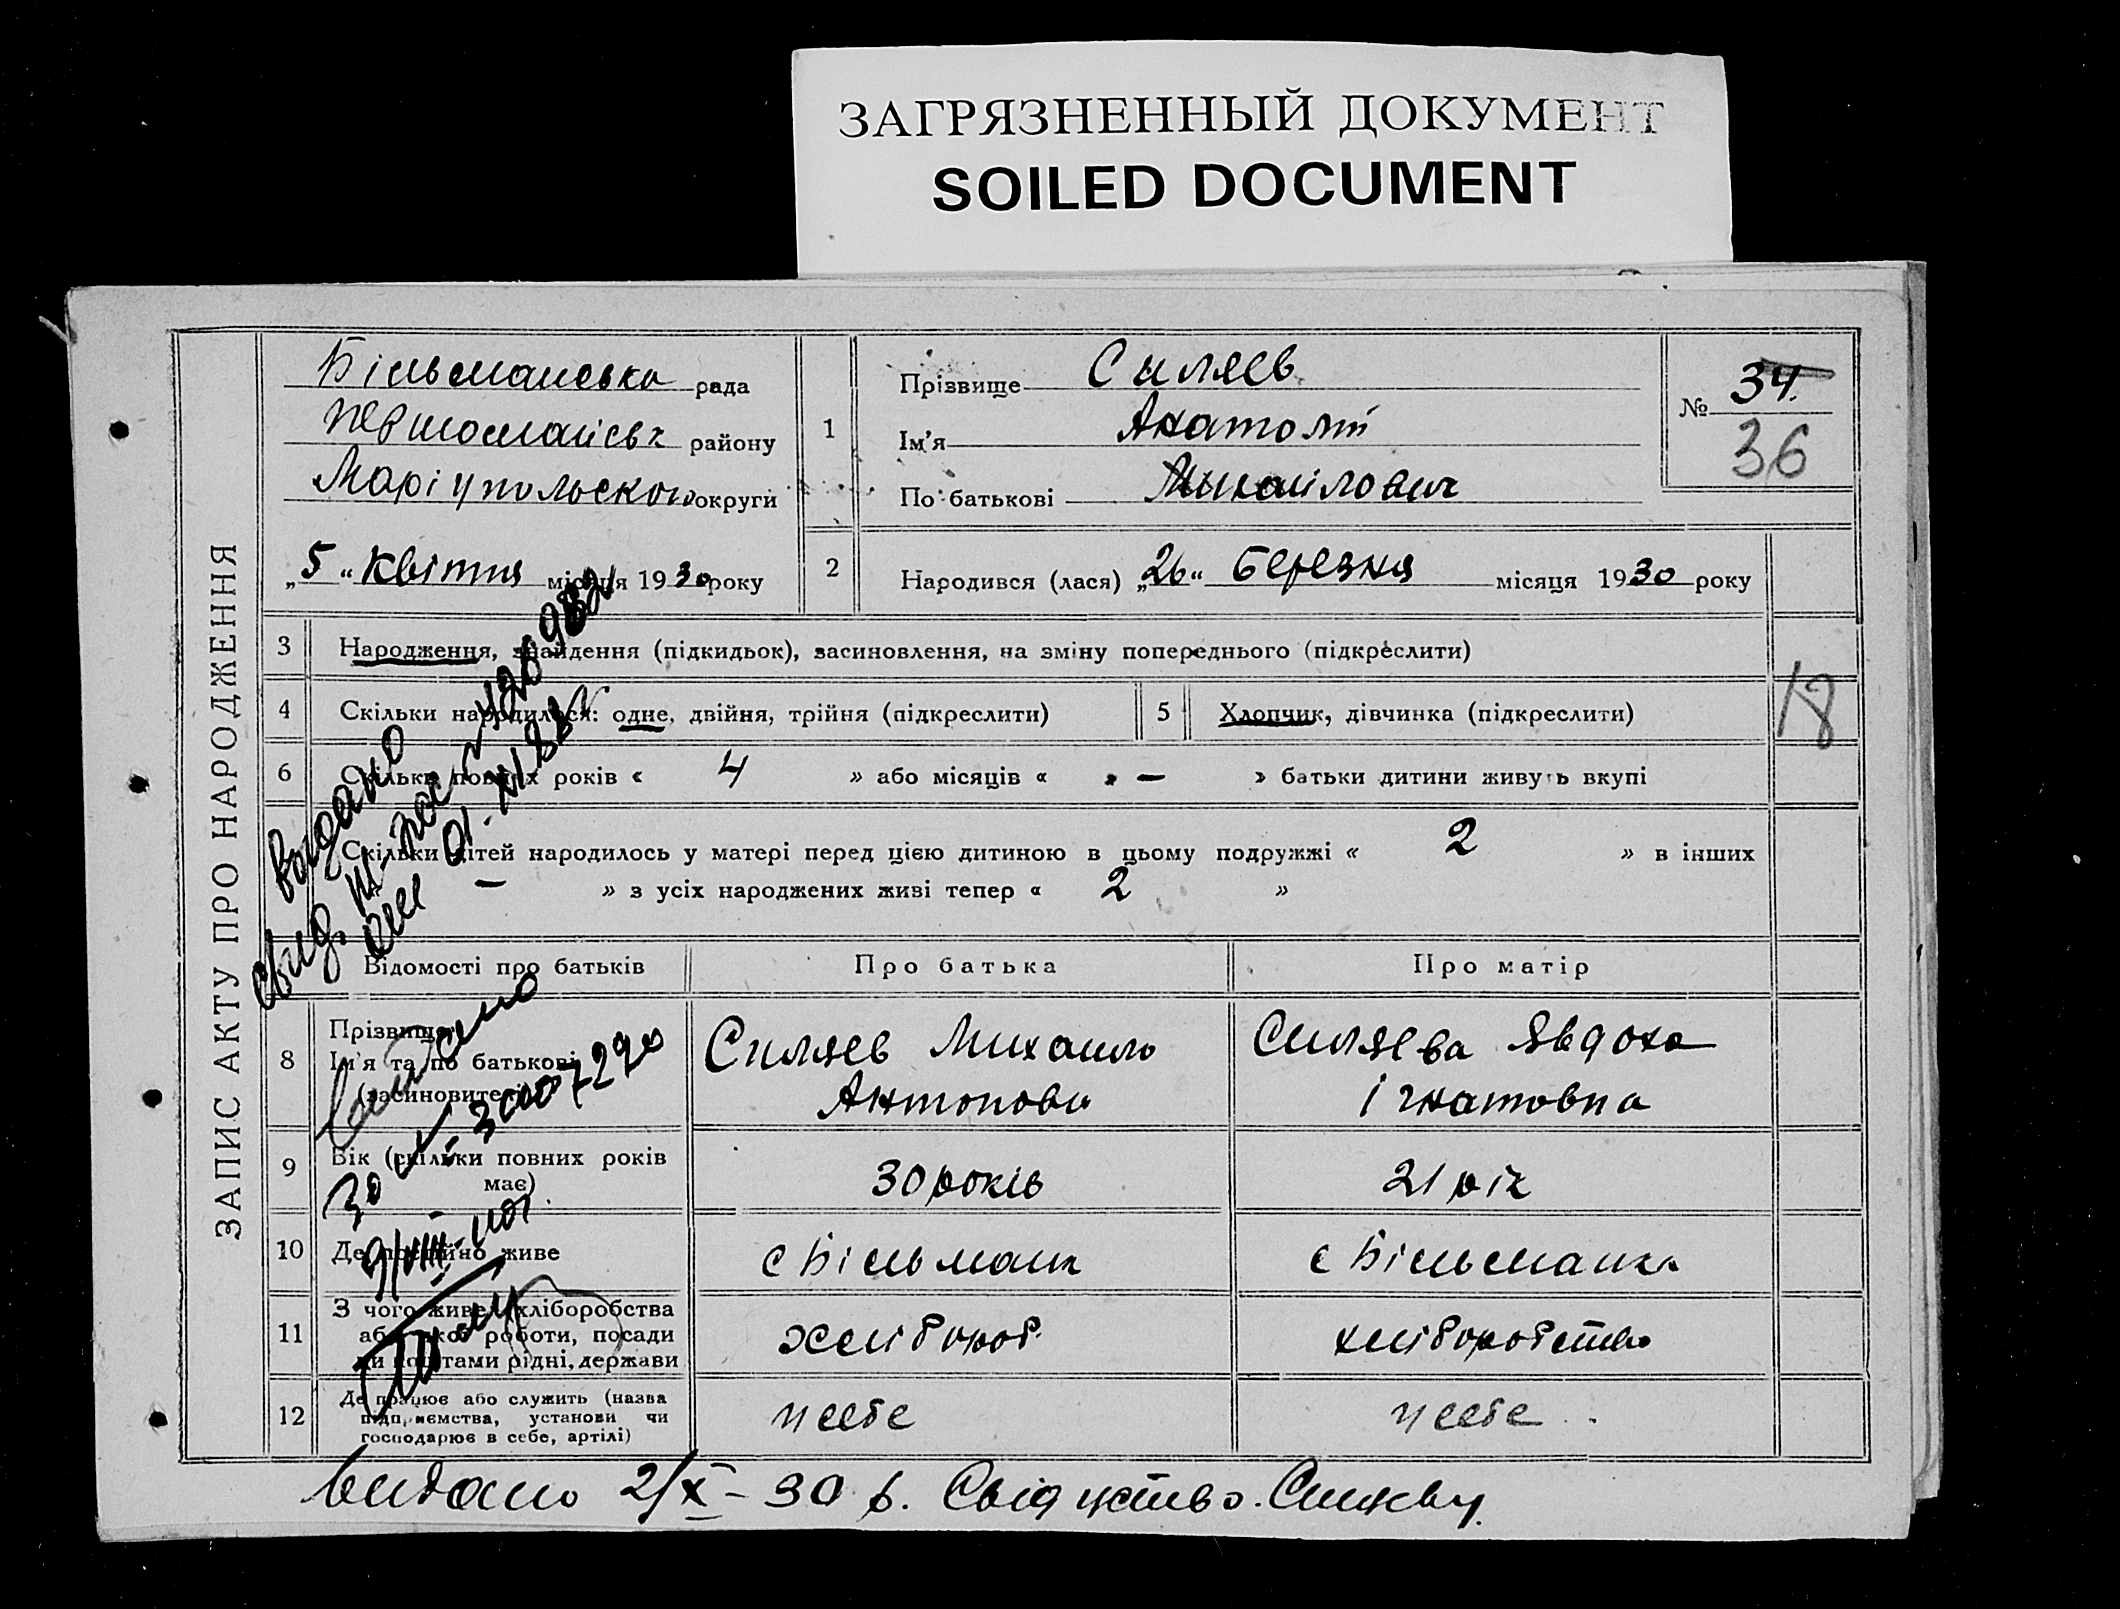 ЗАГРЯЗНЕННЫЙ ДОКУМЕНТ
SOILED DOCUMENT
ЗАПИС АКТУ ПРО НАРОДЖЕННЯ
Більманська рада
Першомайськ району
Маріупольською округи
„5“ Квітня місяця 1930 року
1
Прізвище Силяев
Ім’я Анатолій
По батькові Михайлович
№ 34.
36
2 Народився (лася) „26“ Березня місяця 1930 року
3 Народження, знайдення (підкидьок), засиновлення, на зміну попереднього (підкреслити)
4 Скільки народилося: одне, двійня, трійня (підкреслити)
5 Хлопчик, дівчинка (підкреслити)
18
6 Скільки повних років « 4 » або місяців « — » батьки дитини живуть вкупі
Скільки дітей народилось у матері перед цією дитиною в цьому подружжі « 2 » в інших
— » з усіх народжених живі тепер « 2 »
Відомості про батьків Про батька Про матір
8 Прізвище
Ім’я та по батькові
(засиновителі)
Силяев Михаило
Антонови
Силяева Явдоха
Ігнатовна
9 Вік (скільки повних років
має)
30 років
21 рік
10 Де постійно живе
с Більманк
с Більманка
11 З чого живе: хліборобства
або якої роботи, посади
чи коштами рідні, держави
хлібороб
хліборобство
12 Де працює або служить (назва
підприємства, установи чи
господарює в себе, артілі)
у себе
у себе
выдано
свид.
Видано 2/X – 30 р. Свідуцтво.